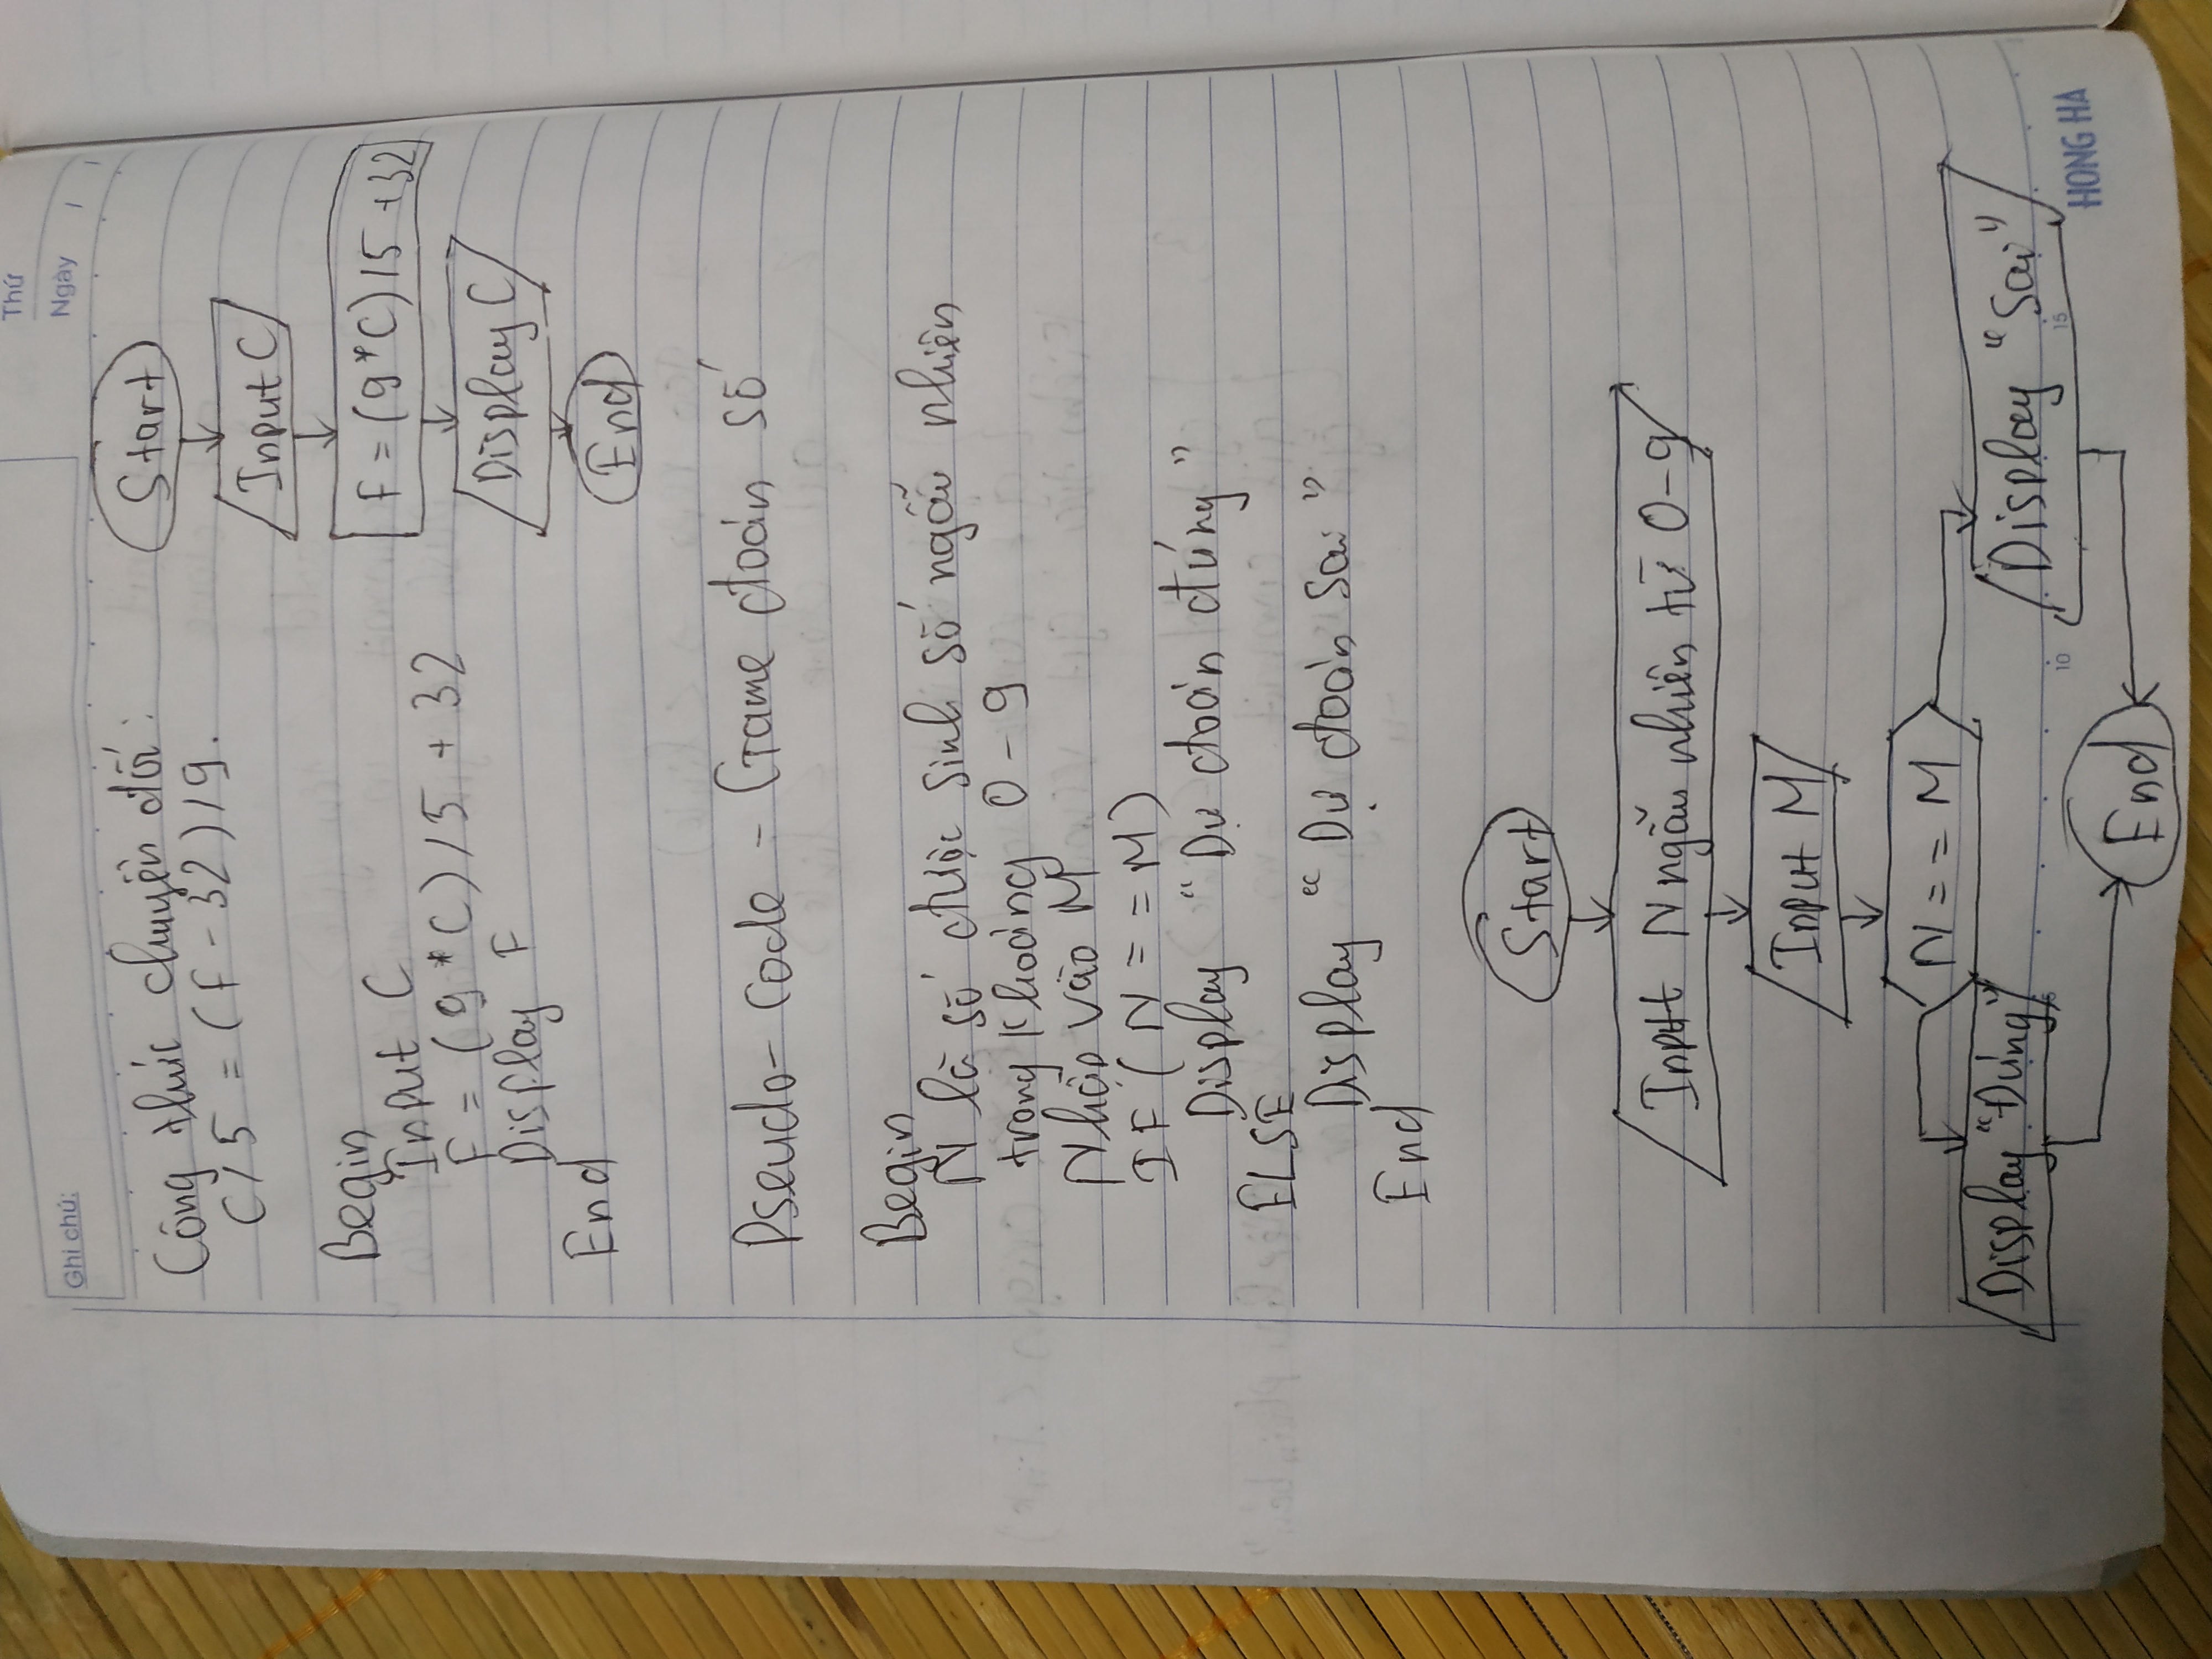 Ghi chú:
Thứ
Ngày / /
Công thức chuyển đổi:
C/5 = (F - 32)/9.
Begin
Input C
F = (9 * C)/5 + 32
Display F
End
Start
Input C
F = (9*C)/5 +32
Display C
End
Pseudo-Code - Game đoán số
Begin
N là số được sinh số ngẫu nhiên
trong khoảng 0 - 9
Nhập vào M
IF (N = = M)
Display “Dự đoán đúng”
ELSE
Display “Dự đoán sai”
End
Start
Input N ngẫu nhiên từ 0-9
Input M
N = = M
Display “Đúng”
Display “Sai”
End
5 10 15
HONG HA